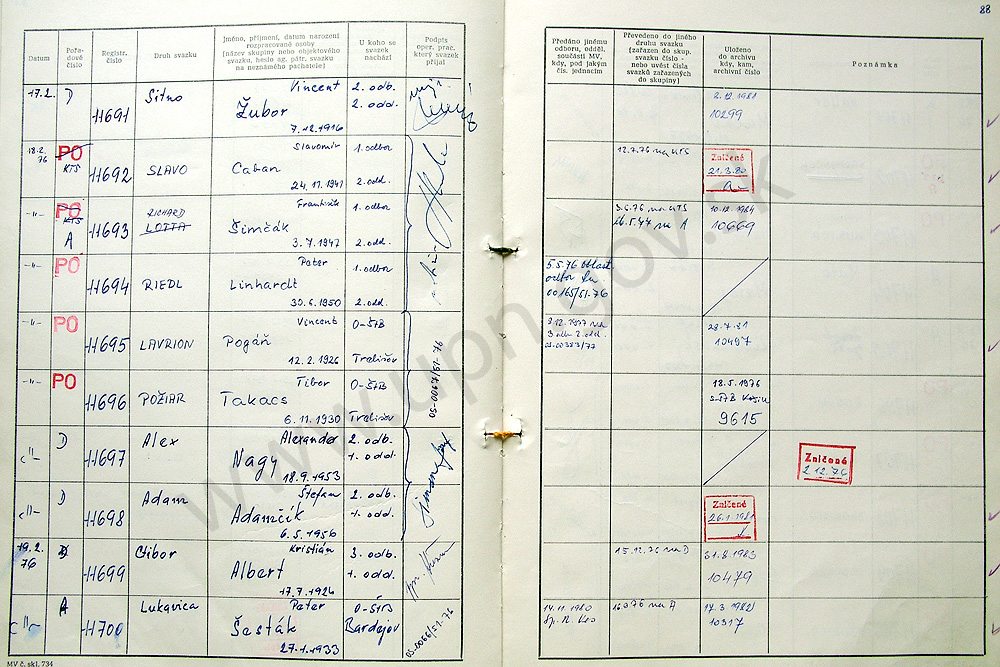 88
Datum
Pořa-
dové
číslo
Registr.
číslo
Druh svazku
Jméno, příjmení, datum narození
rozpracované osoby
(název skupiny nebo objektového
svazku, heslo ag. pátr. svazku
na neznámého pachatele)
U koho se
svazek
nachází
Podpis
oper. prac.
který svazek
přijal
Předáno jinému
odboru, odděl.
součásti MV,
kdy, pod jakým
čís. jednacím
Převedeno do jiného
druhu svazku
(zařazen do skup.
svazku číslo -
nebo uvést čísla
svazků zařazených
do skupiny)
Uloženo
do archivu
kdy, kam,
archivní číslo
Poznámka
17.2. D 11691 Sitno Vincent 2. odb.
Žubor 2. odd.
7.12.1916
2.12.1981
10299
18.2.
76 PO
KTS 11692 SLAVO Slavomír 1. odbor
Caban
24.11.1947 2. odd.
12.7.76 na KTS
Zničené
21.3.80
-"- PO
KTS
A 11693 RICHARD
LOTTA František 1. odbor
Šimčák
3.7.1947 2. odd.
3.6.76 na KTS
na A
10.12.1984
10669
-"- PO 11694 RIEDL Peter 1. odbor
Linhardt
30.6.1950 2. odd.
5.5.76 oblast
odbor
00165/51-76
-"- PO 11695 LAVRION Vincent O-ŠtB
Pogáň
12.2.1926 Trebišov
3.12.1977 na
3 odb 2. odd.
28.7.81
10497
-"- PO 11696 POŽIAR Tibor O-ŠtB
Takacs
6.11.1930 Trebišov
OS-0067/51-76
18.5.1976
9615
-"- D 11697 Alex Alexander 2. odb.
Nagy 1. odd.
18.9.1953
Zničené
2.12.76
-"- D 11698 Adam Štefan 2. odb.
Adamčík 1. odd.
6.5.1956
Zničené
26.1.1981
19.2.
76 11699 Gibor Kristián 3. odb.
Albert 1. odd.
17.7.1926
15.12.76 na D
31.8.1983
10479
-"- A 11700 Lukavica Peter O-ŠtB
Šesták Bardejov
27.1.1933
OS-0066/51-76
14.11.1980
na A
17.3.1982
10317
MV č. skl. 734
www.upn.gov.sk